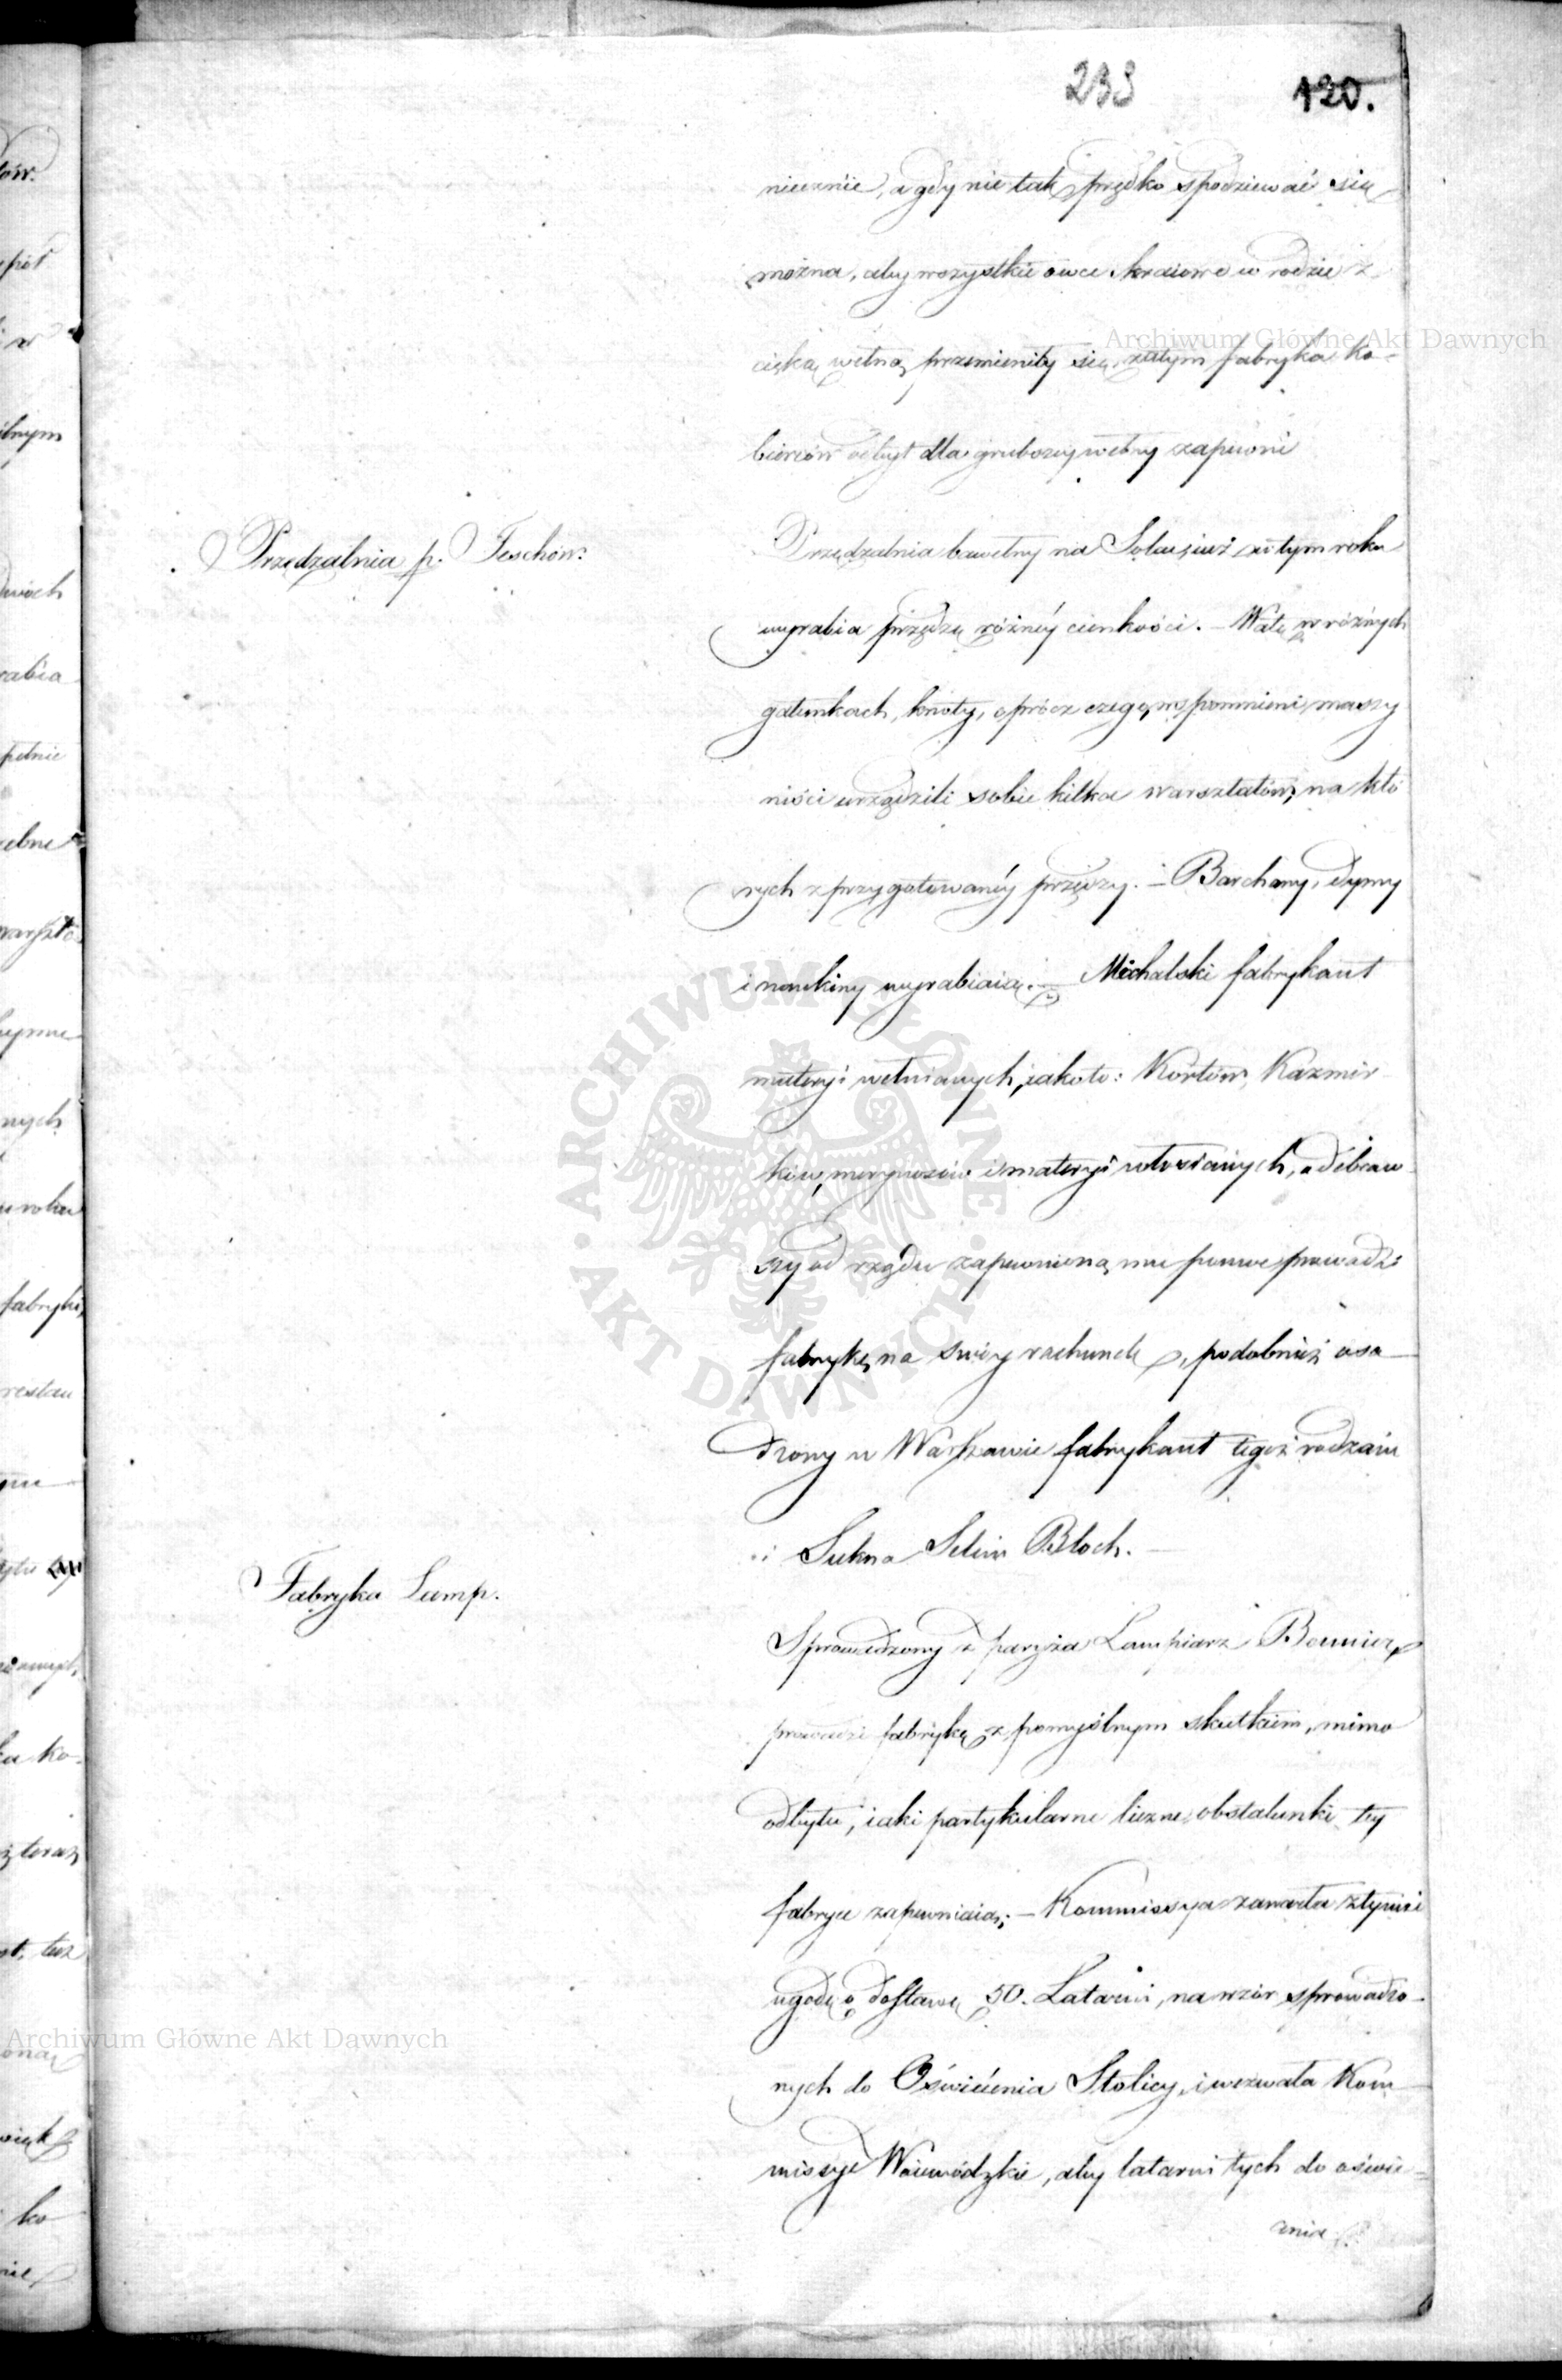 239 120.
niecznie, a gdy nie tak prędko spodziewać się
można, aby wszystkie owce kraiowe w rodzie z
cięką wełną przemieniły się, zatym fabryka ko-
bierców odbyt dla grubszey wełny zapewni
Przędzalnia p. Feschów.
Przędzalnia bawełny na Solcu, iuż w tym roku
wyrabia przędzę różnéy cienkości. – Watę w różnych
gatunkach, knoty, oprócz czego, wspomnieni maszy
niści urządzili sobie kilka warsztatów, na któ
rych z przygotowanéy przędzy. – Barchany, dymy
i nankiny wyrabiaią. – Michalski fabrykant
materyi wełnianych, iakoto: Kortów, Kazmir
ków, merynosów i materyi włosianych, odebraw
szy od rządu zapewnioną mu pomoc prowadzi
fabrykę na swóy rachunek, podobnież osa–
dzony w Warszawie fabrykant tegoż rodzaiu
i Sukna Selim Bloch. –
Fabryka Lamp.
Sprowadzony z paryża Lampiarz
prowadzi fabrykę z pomyślnym skutkiem, mimo
odbytu, iaki partykularne liczne obstalunki tey
fabryce zapewniaią; – Kommissya zawarła z tymże
ugodę o dostawę 50. Latarni, na wzór sprowadzo-
nych do Oświécenia Stolicy, i wezwała Kom–
missye Woiewódzkie, aby latarni tych do oświe=
cenia
Archiwum Główne Akt Dawnych
ARCHIWUM GŁÓWNE • AKT DAWNYCH •
Archiwum Główne Akt Dawnych